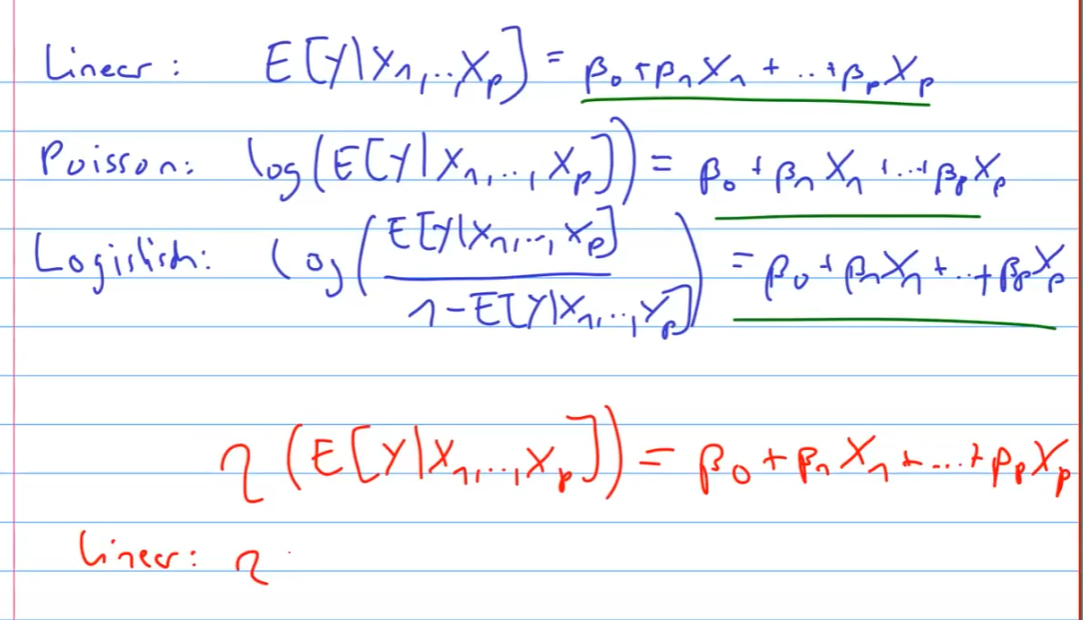 Linear: E[Y|X₁,..,Xₚ] = β₀+β₁X₁+..+βₚXₚ
Poisson: log(E[Y|X₁,..,Xₚ]) = β₀+β₁X₁+..+βₚXₚ
Logistisch: log(E[Y|X₁,..,Xₚ] / 1-E[Y|X₁,..,Xₚ]) = β₀+β₁X₁+..+βₚXₚ
η(E[Y|X₁,..,Xₚ]) = β₀+β₁X₁+...+βₚXₚ
Linear: η